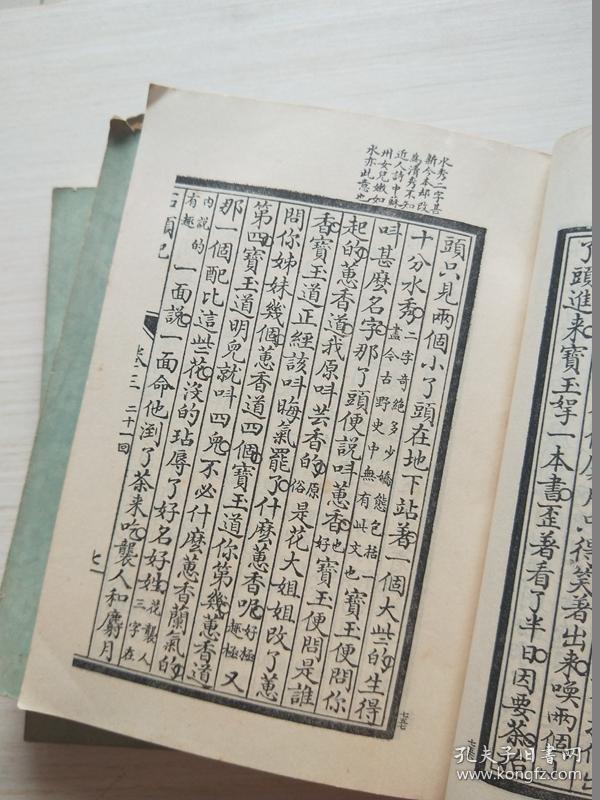 得笑著出來喚兩個
了頭進來寶玉拏一本書歪著看了半日因要茶抬
水秀二字甚
新今本却改
為清秀不知
近人詩中蘇
州女兒嫩如
水亦此意也
頭只見兩個小了頭在地下站著一個大些的生得
十分水秀二字奇絕多少嬌態包括一盡今古野史中無有此文也寶玉便問你
叫甚麼名字那了頭便說叫蕙香也好寶玉便問是誰
起的蕙香道我原叫芸香的原俗是花大姐姐改了蕙
香寶玉道正經該叫晦氣罷了什麼蕙香呢好極趣極又
問你姊妹幾個蕙香道四個寶玉道你第幾蕙香道
第四寶玉道明兒就叫四兒不必什麼蕙香蘭氣的
那一個配比這些花沒的玷辱了好名好姓花襲人三字在
內說的有趣一面說一面命他倒了茶來吃襲人和麝月
石頭記 卷三 二十一回 七
孔夫子旧书网
www.kongfz.com